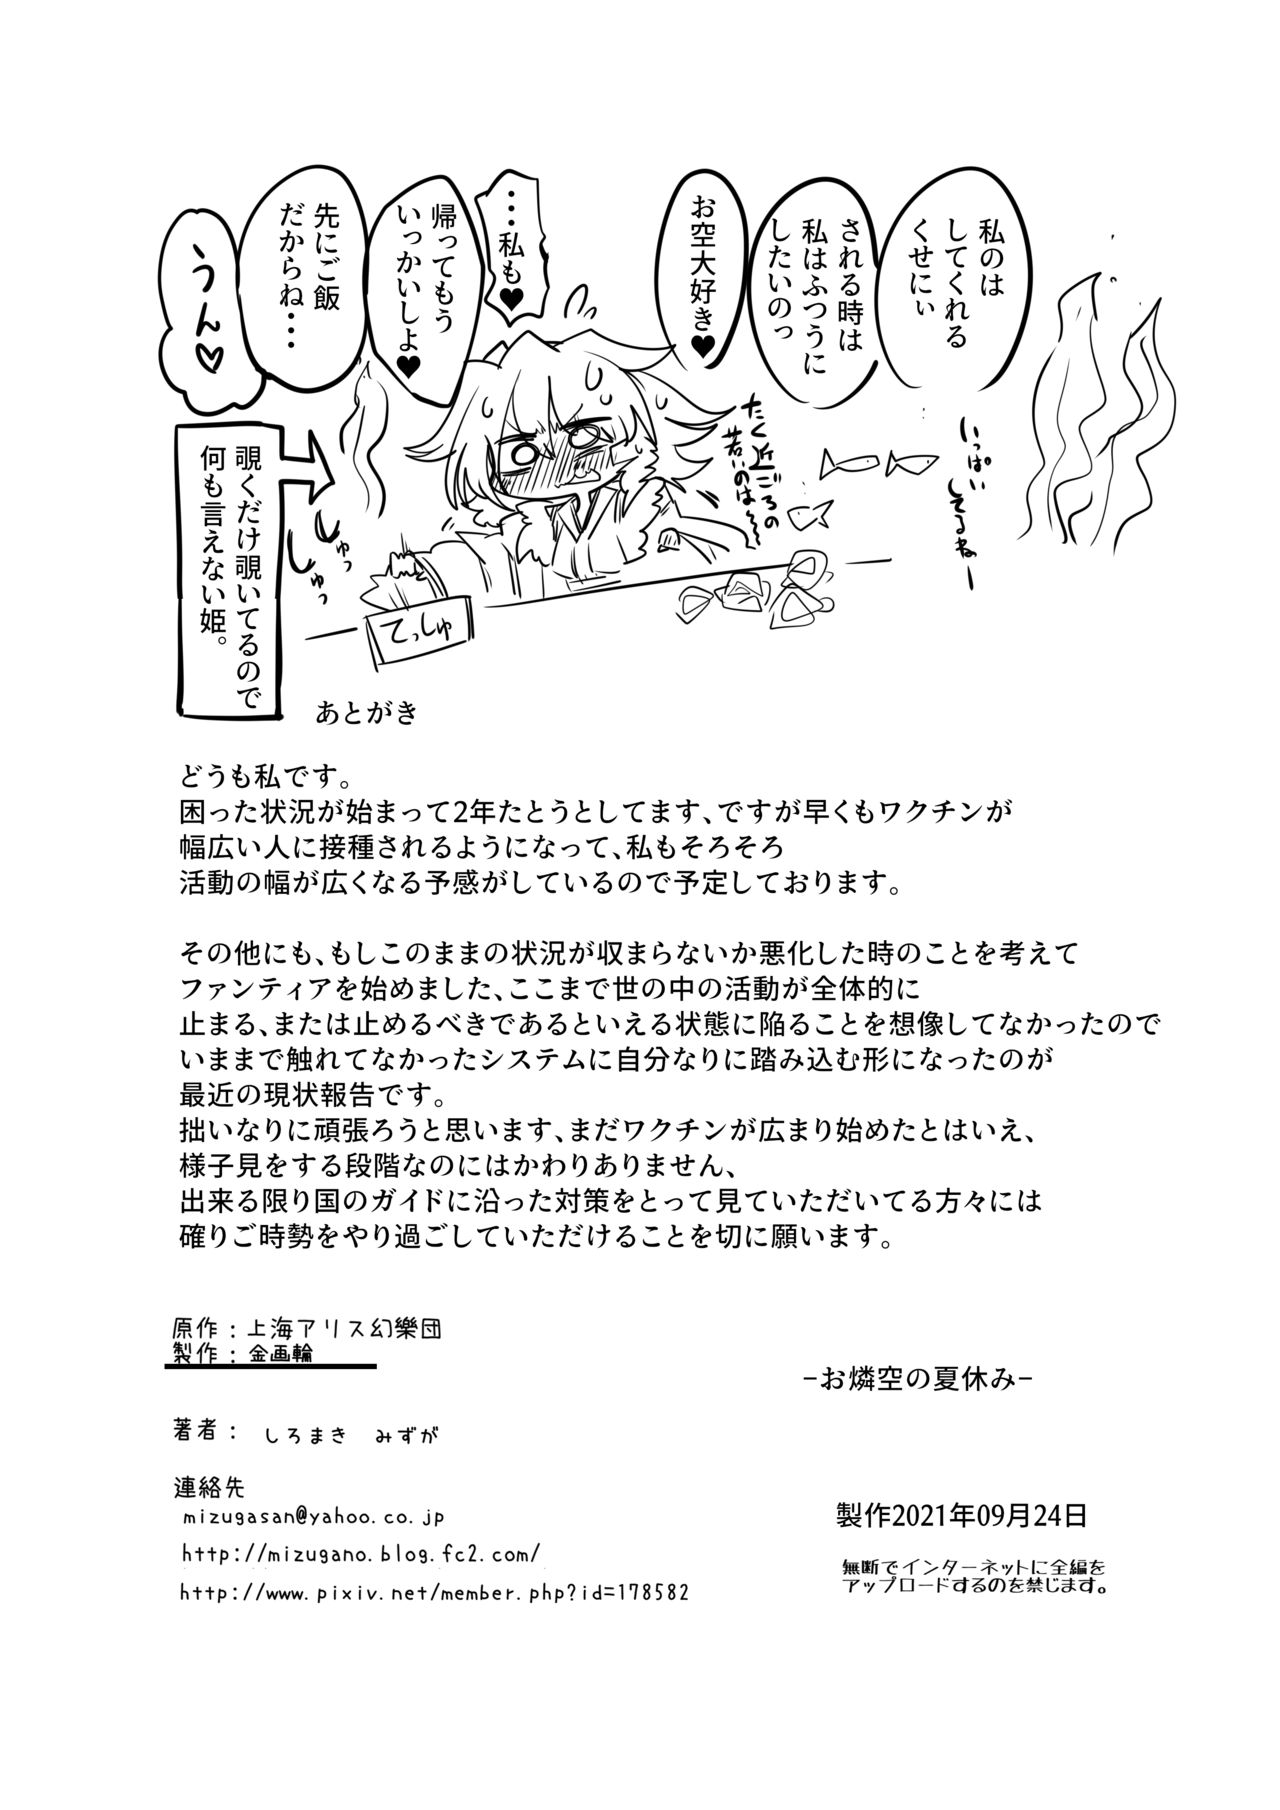 私のは
してくれる
くせにぃ
される時は
私はふつうに
したいのっ
お空大好き♥
…私も♥
帰ってもう
いっかいしよ♥
先にご飯
だからね…
うん♡
いっぱい
してるねー
たく近ごろの
若いのは～
しゅっ
しゅっ
てぃしゅ
覗くだけ覗いてるので
何も言えない姫。
あとがき
どうも私です。
困った状況が始まって2年たとうとしてます、ですが早くもワクチンが
幅広い人に接種されるようになって、私もそろそろ
活動の幅が広くなる予感がしているので予定しております。
その他にも、もしこのままの状況が収まらないか悪化した時のことを考えて
ファンティアを始めました、ここまで世の中の活動が全体的に
止まる、または止めるべきであるといえる状態に陥ることを想像してなかったので
いままで触れてなかったシステムに自分なりに踏み込む形になったのが
最近の現状報告です。
拙いなりに頑張ろうと思います、まだワクチンが広まり始めたとはいえ、
様子見をする段階なのにはかわりありません、
出来る限り国のガイドに沿った対策をとって見ていただいてる方々には
確りご時勢をやり過ごしていただけることを切に願います。
原作：上海アリス幻樂団
製作：金画輪
-お燐空の夏休み-
著者： しろまき みずが
連絡先
mizugasan@yahoo.co.jp
http://mizugano.blog.fc2.com/
http://www.pixiv.net/member.php?id=178582
製作2021年09月24日
無断でインターネットに全編を
アップロードするのを禁じます。